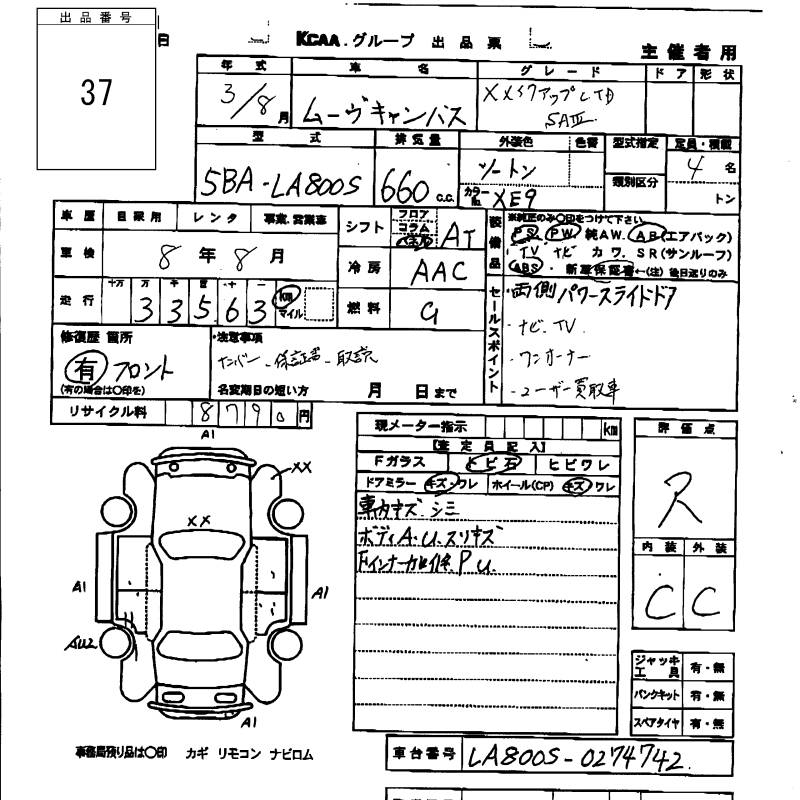 出品番号
37
日
KCAA.グループ 出品票
主催者用
年式 車名 グレード ドア 形状
3/8月 ムーヴキャンバス XメイクアップLTD
SAⅢ
型式 排気量 外装色 色番 型式指定 定員・積載
5BA-LA800S 660 c.c. ツートン 類別区分 4名
カラーNo. XE9 トン
車歴 自家用 レンタ 事業.営業車 シフト フロア コラム パネル AT
装備品 ※純正のみ〇印をつけて下さい
PS PW 純AW. AB(エアバック)
TV ナビ カワ. SR(サンルーフ)
ABS 新車保証書←(注)後日送りのみ
車検 8年8月 冷房 AAC
走行 十万 万 千 百 十 一
33563 km マイル 燃料 G
セールスポイント
両側パワースライドドア
・ナビ.TV
・ワンオーナー
・ユーザー買取車
修復歴 箇所
有 フロント
(有の場合は〇印を)
・注意事項
ナンバー.保証書.取説
名変期日の短い方 月 日まで
リサイクル料 8790円
現メーター指示 km
【査定員記入】
Fガラス トビ石 ヒビワレ
ドアミラー キズ・ワレ ホイール(CP) キズ・ワレ
車内キズ.シミ
ボディA.U.スリキズ
P U.
評価点
R
内装 外装
C C
A1
XX
XX
A1
A1
AU2
A1
ジャッキ工具 有・無
パンクキット 有・無
スペアタイヤ 有・無
事務局預り品は〇印 カギ リモコン ナビロム
車台番号 LA800S-0274742